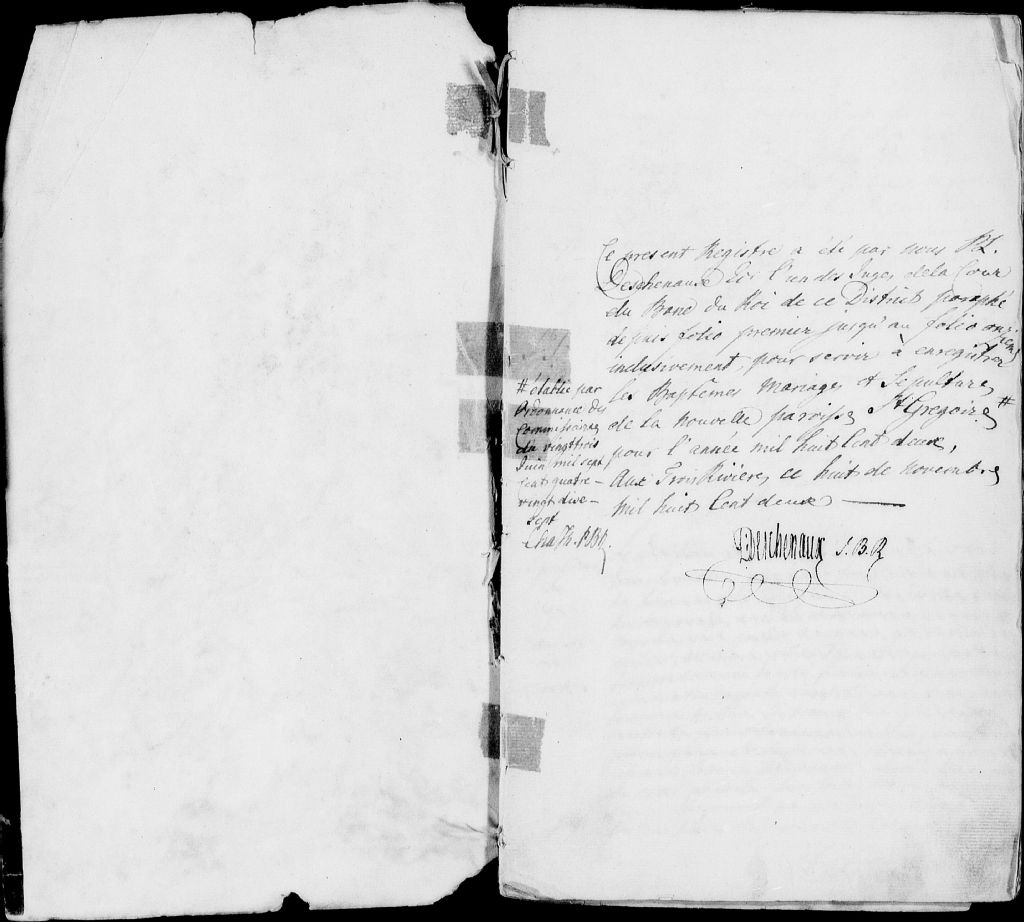 Ce present Registre a été par nous P.L.
Deschenaux Ecr l'un des Juges de la Cour
du Banc du Roi de ce District paraphé
depuis folio premier jusqu'au folio onzieme
inclusivement, pour servir à enregistrer
les Baptêmes Mariages et Sepultures
de la nouvelle paroisse St Gregoire #
pour l'année mil huit Cent deux,
Aux Trois Rivieres ce huit de Novembre
mil huit Cent deux
Deschenaux J.B.R
# établie par
Ordonnance des
Commissaires
du vingt trois
Juin mil sept
Cent quatre-
vingt dixe-
sept